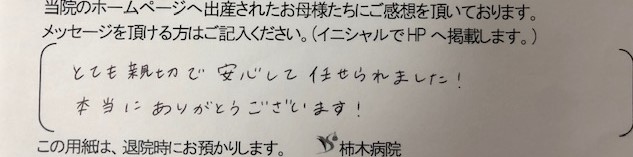 当院のホームページへ出産されたお母様たちにご感想を頂いております。
メッセージを頂ける方はご記入ください。(イニシャルでHPへ掲載します。)
とても親切で 安心して 任せられました!
本当に ありがとうございます!
この用紙は、退院時にお預かりします。 柿木病院